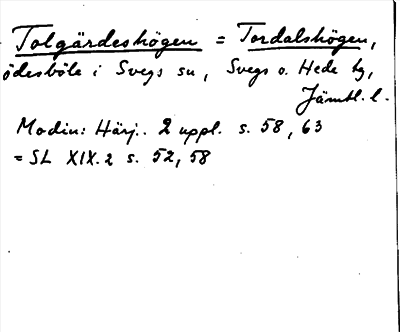 Tolgärdeshögen = Tordalshögen,
ödesböle i Svegs sn, Svegs o. Hede tg,
Jämtl. l.
Modin: Härj.. 2 uppl. s. 58, 63
= SL XIX.2 s. 52, 58